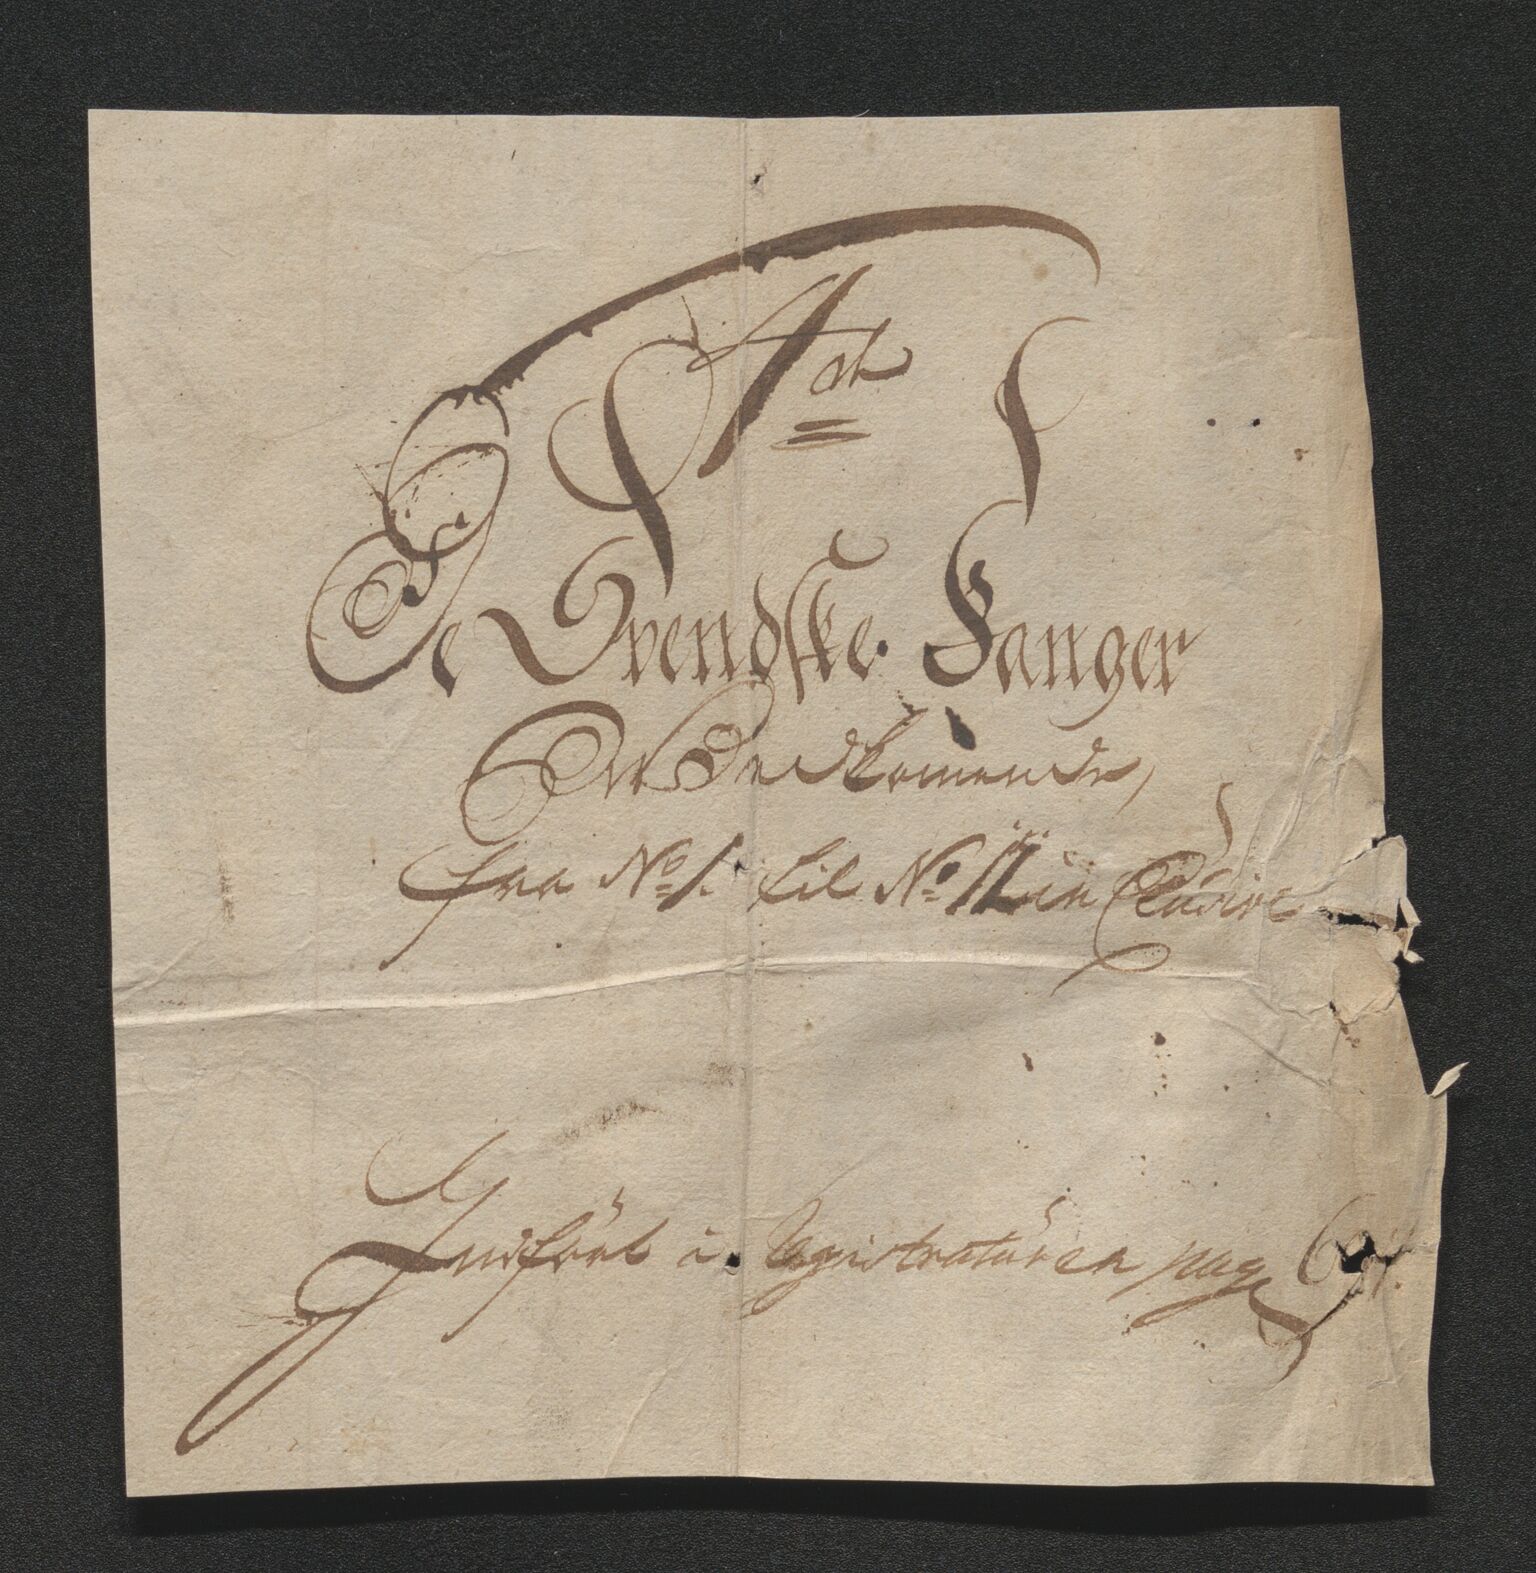 Act
De Svendske Fanger
Vedkomende,
fra No. 1. til No. 11 in Clusive
Indført i Registraturen pag